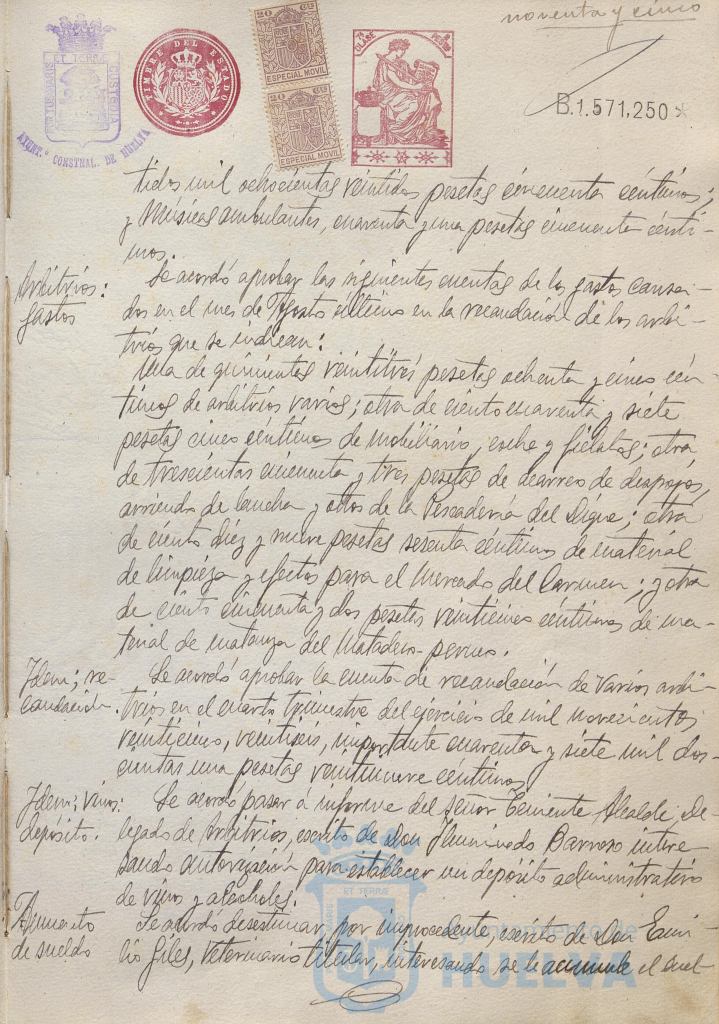 noventa y cinco
PORTUS MARIS ET TERRÆ CUSTODIA
AYUNT.º CONSTNAL. DE HUELVA
TIMBRE DEL ESTADO
20 CS
ESPECIAL MOVIL
20 CS
ESPECIAL MOVIL
CLASE
B.1.571,250*
tidos mil ochocientas veintidos pesetas cincuenta céntimos;
y Músicas ambulantes, cuarenta y una pesetas cincuenta cénti-
mos.
Arbitrios: Se acordó aprobar las siguientes cuentas de los gastos causa-
gastos dos en el mes de Agosto último en la recaudación de los arbi-
trios que se indican:
Una de quinientas veintitrés pesetas ochenta y cinco cén-
timos de arbitrios varios; otra de ciento cuarenta y siete
pesetas cinco céntimos de mobiliario, coche y fielatos; otra
de trescientas cincuenta y tres pesetas de acarreo de despojos,
arriendo de lancha y otros de la Pescadería del Dique; otra
de ciento diez y nueve pesetas sesenta céntimos de material
de limpieza y efectos para el Mercado del Carmen; y otra
de ciento cincuenta y dos pesetas veinticinco céntimos de ma-
terial de matanza del Matadero público.
Idem; re- Se acordó aprobar la cuenta de recaudación de Varios arbi-
caudación. trios en el cuarto trimestre del ejercicio de mil novecientos
veinticinco, veintiseis, importante cuarenta y siete mil dos-
cientas una pesetas veintinueve céntimos.
Idem; vinos: Se acordó pasar á informe del Señor Teniente Alcalde De-
depósito. legado de Arbitrios, escrito de Don Iluminado Barroso intere
sando autorización para establecer un depósito administrativo
de vinos y alcoholes.
Aumento Se acordó desestimar, por improcedente, escrito de Don Emi-
de sueldo lio Giles, Veterinario titular, interesando se le acumule el suel-
ET TERRÆ
Ayuntamiento de
HUELVA